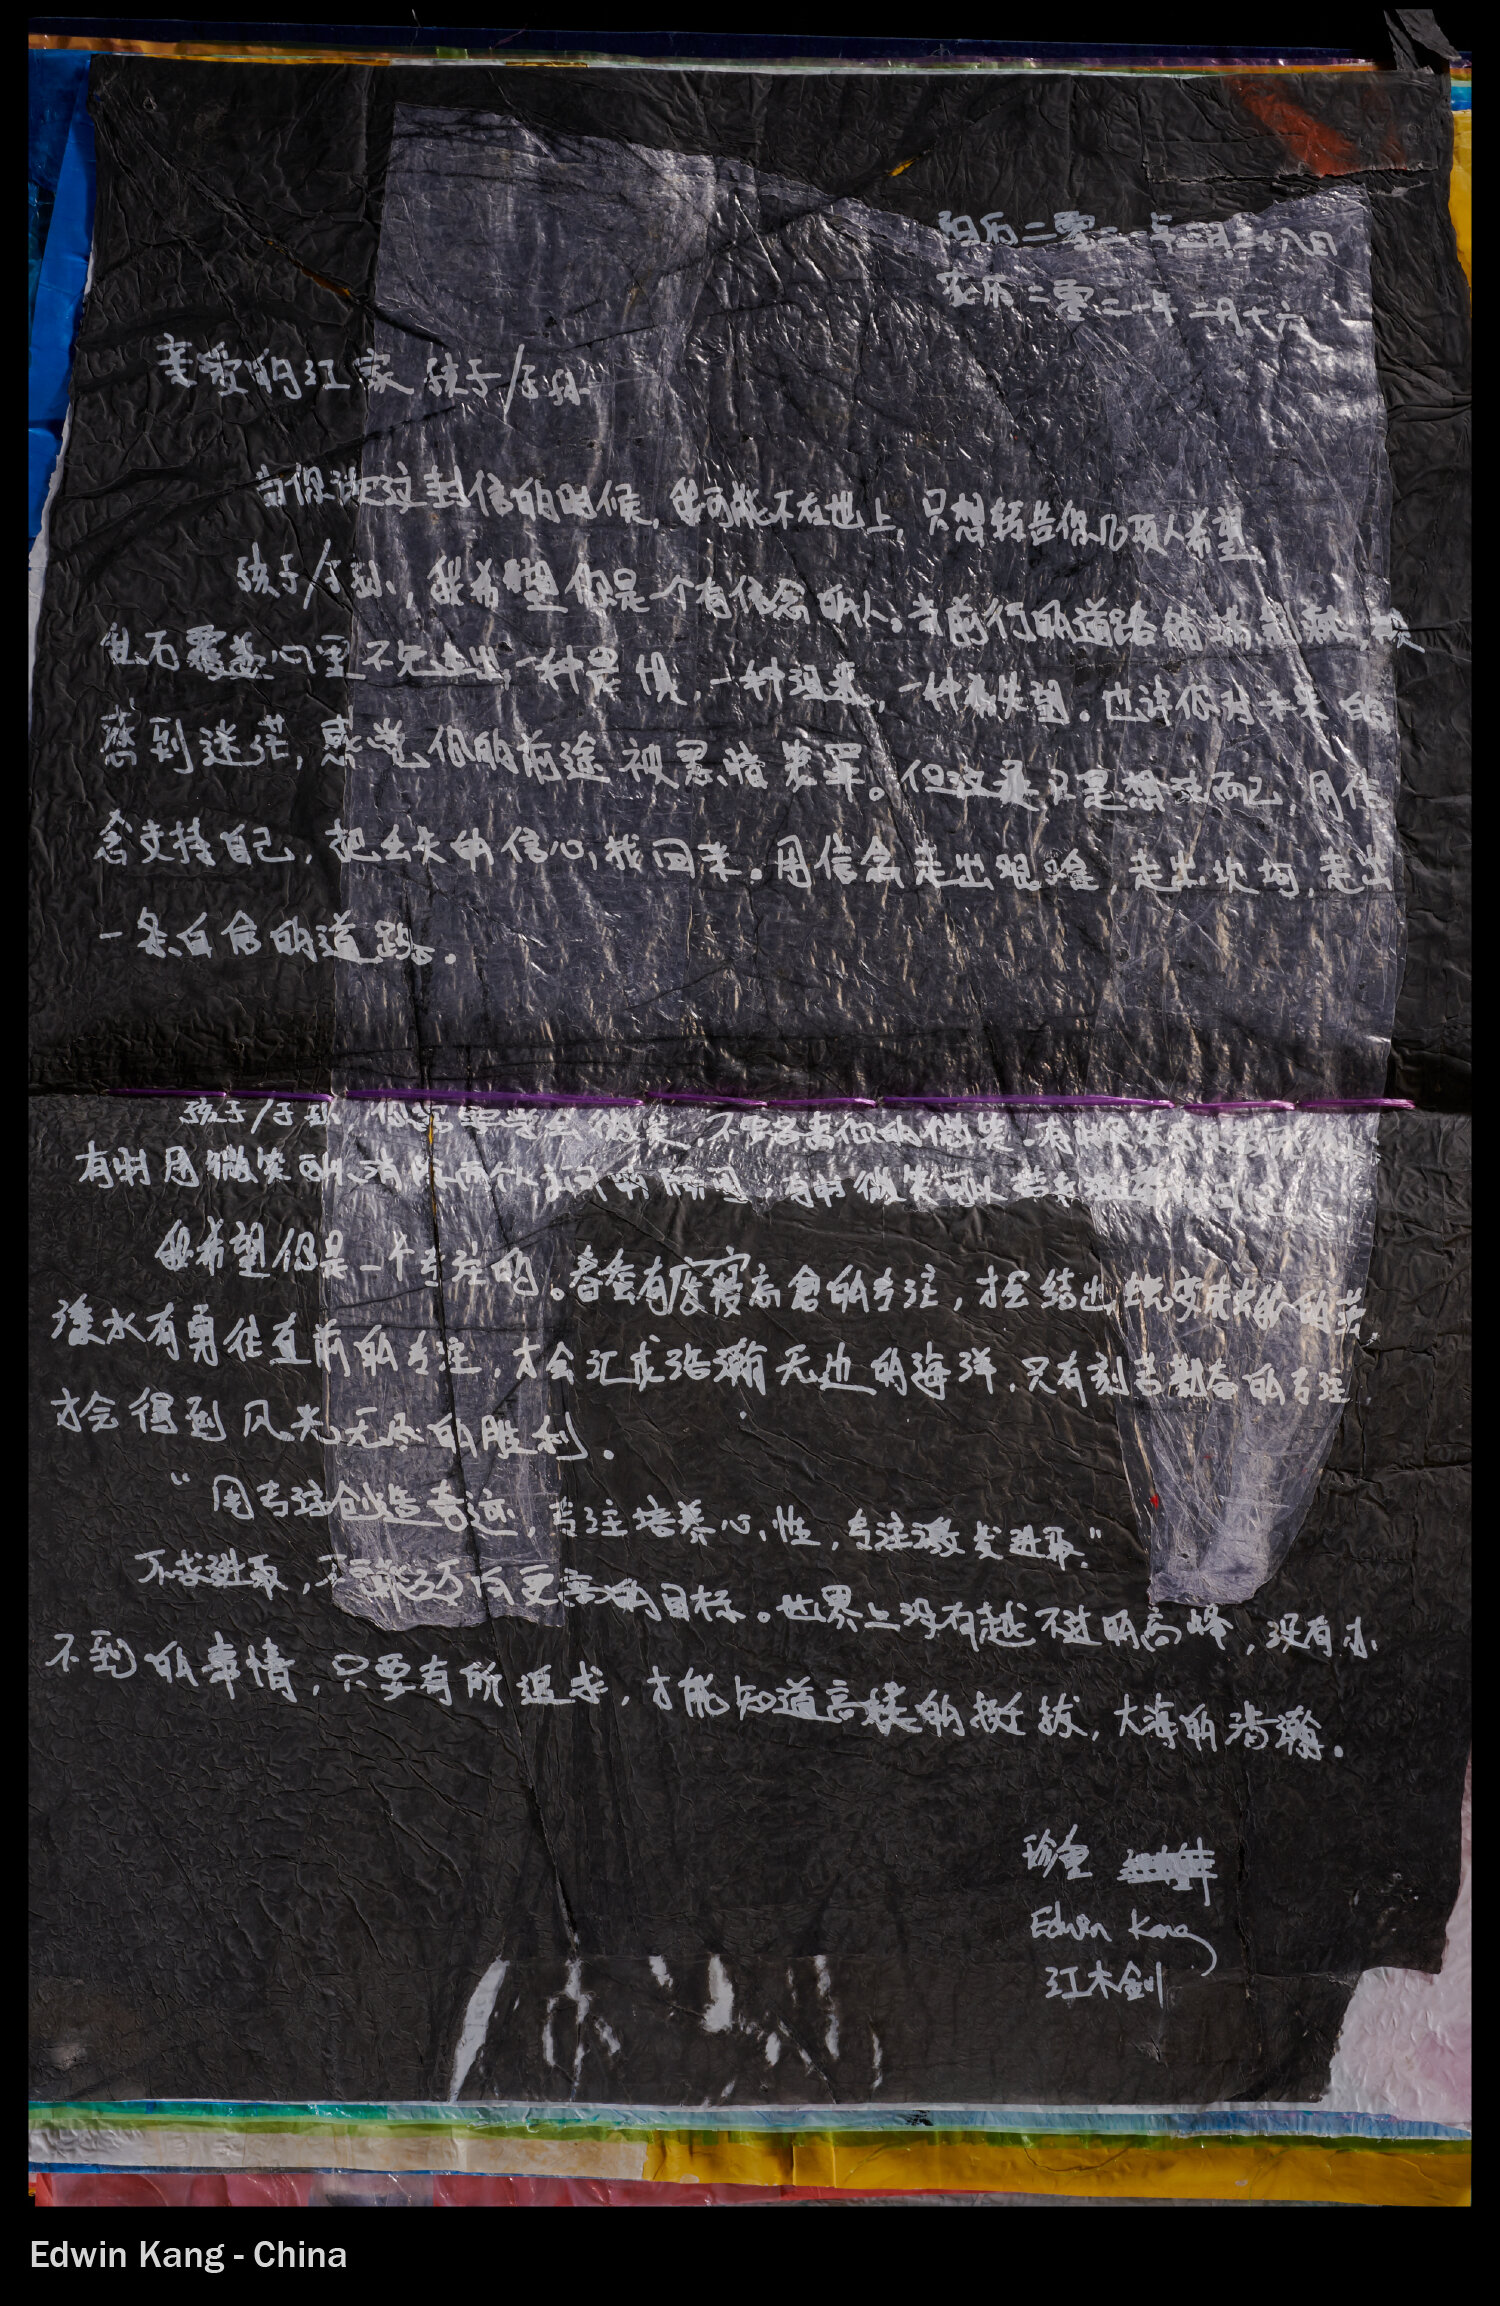 阳历二零二一年三月二十八日
农历二零二一年二月十六
亲爱的江家孩子/子孙
当你读这封信的时候，我可能不在世上，只想转告你几项人希望
孩子/子孙，我希望你是一个有信念的人。当前行的道路铺满荆棘，
乱石覆盖心里不免走出一种畏惧，一种沮丧，一种失望。也许你对未来的
感到迷茫，感觉你的前途被黑暗笼罩。但这只是想法而已，用信
念支持自己，把丢失的信心找回来。用信念走出艰险，走出坎坷，走出
一条自信的道路。
孩子/子孙，你需要学会微笑，不要吝啬你的微笑。有时
有时用微笑可以消除两个人之间的隔阂，有时微笑可以
我希望你是一个专注的。春蚕有废寝忘食的专注，才会结出
溪水有勇往直前的专注，才会汇成浩瀚无边的海洋，只有刻苦勤奋的专注
才会得到风光无尽的胜利。
“用专注创造奇迹，专注培养心性，专注激发进取”
不求进取，不能迈向更高的目标。世界上没有越不过的高峰，没有办
不到的事情，只要有所追求，才能知道高楼的挺拔，大海的浩瀚。
珍重
Edwin Kang
江木钊
Edwin Kang - China